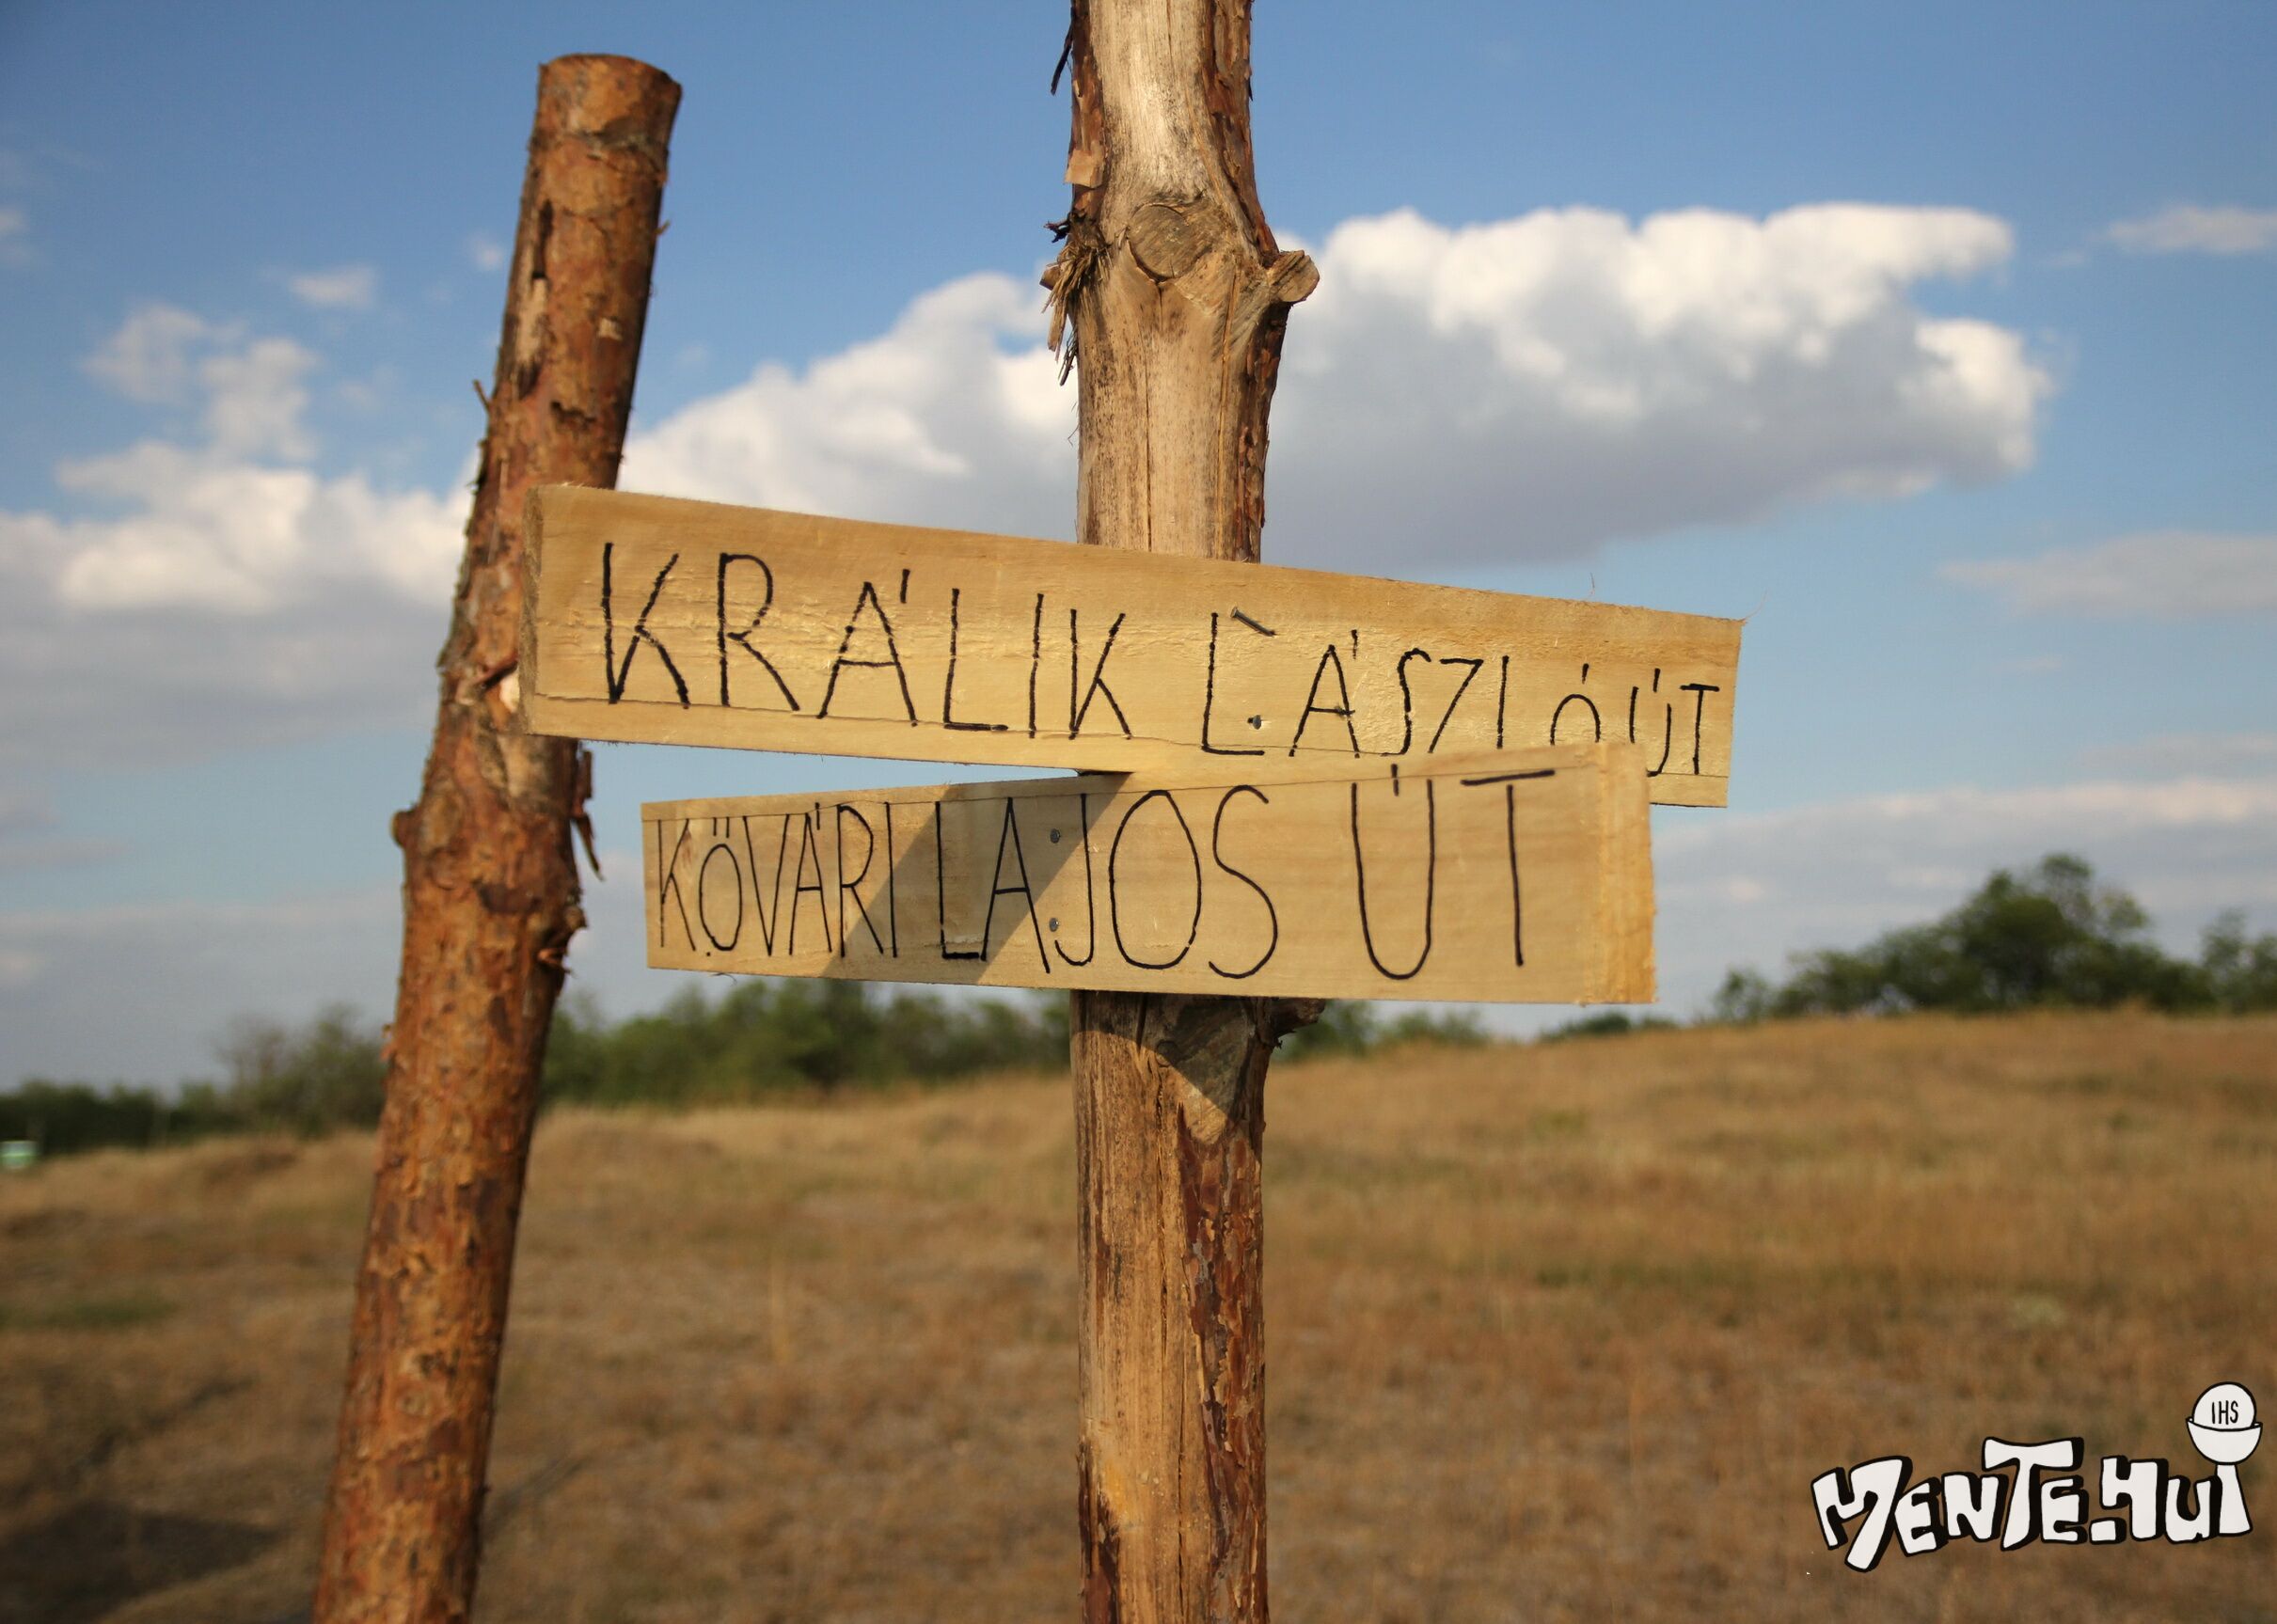 KRÁLIK LÁSZLÓ ÚT
KÖVÁRI LAJOS ÚT
IHS
MENTE.HU